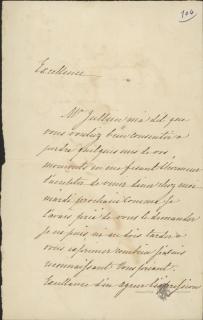 104
Excellence
Mr Jullien m'a dit que
vous vouliez bien consentir à
perdre quelques uns de vos
moments en me faisant l'honneur
d'accepter de venir diner chez moi
mardi prochain comme je
l'avais prié de vous le demander
je ne puis ni ne dois tarder à
vous exprimer combien je suis
reconnaissant vous priant
Excellence d'en agréer l'expression